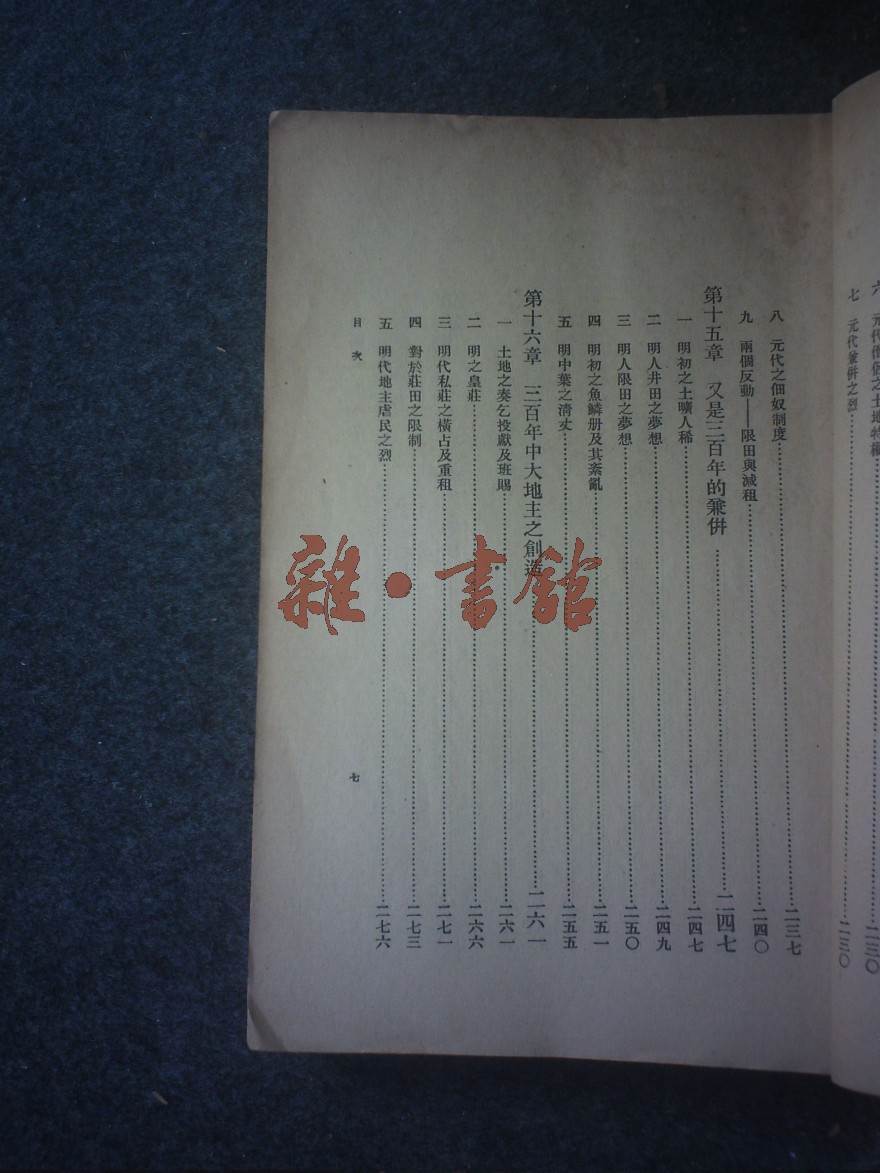 六 元代僧侶之土地特權……二三〇
七 元代兼併之烈……二三〇
八 元代之佃奴制度……二三七
九 兩個反動——限田與減租……二四〇
第十五章 又是三百年的兼併……二四七
一 明初之土曠人稀……二四七
二 明人井田之夢想……二四九
三 明人限田之夢想……二五〇
四 明初之魚鱗册及其紊亂……二五一
五 明中葉之清丈……二五五
第十六章 三百年中大地主之創造……二六一
一 土地之奏乞投獻及班賜……二六一
二 明之皇莊……二六六
三 明代私莊之橫占及重租……二七一
四 對於莊田之限制……二七三
五 明代地主虐民之烈……二七六
目次
七
雜·書館